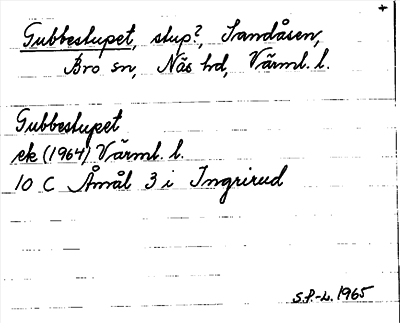 +
Gubbestupet, stup?, Sandåsen,
Bro sn, Näs hd, Värml. l.
Gubbestupet
ek (1964) Värml. l.
10 C Åmål 3 i Ingrirud
S.P.-L. 1965